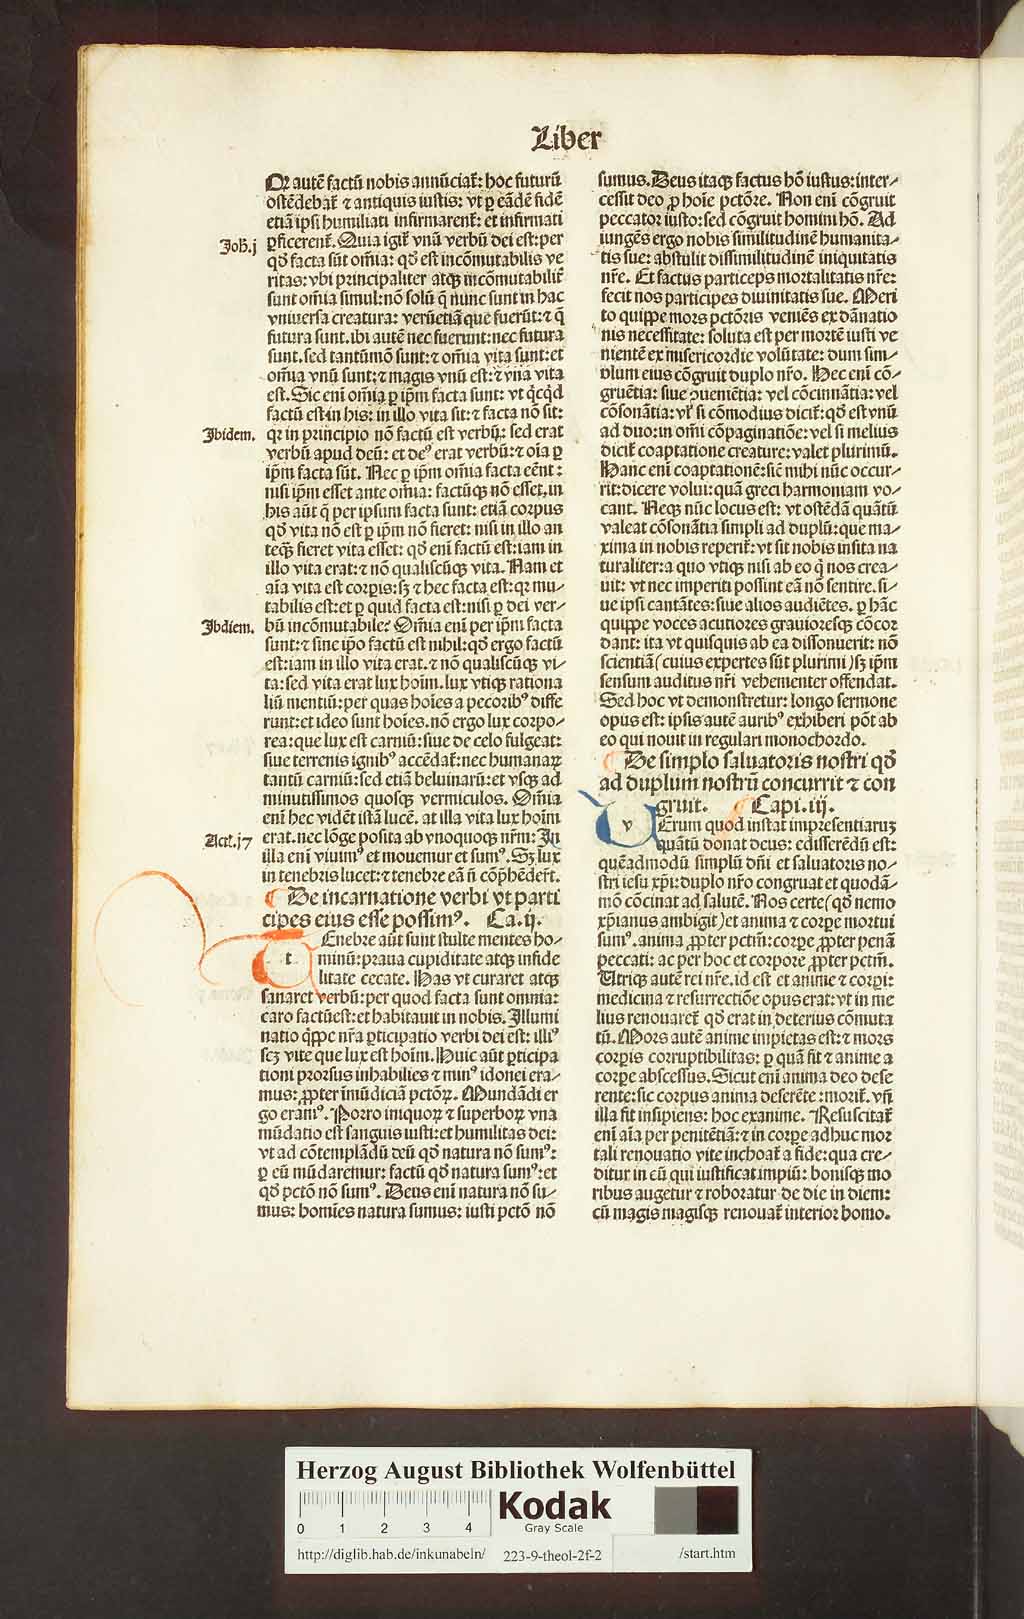 Liber
Qr autē factū nobis annūciat᷑: hoc futurū
ostēdebat᷑ ⁊ antiquis iustis: vt ꝑ eādē fidē
etiā ipsi humiliati infirmarent᷑: et infirmati
Joh̄. j
ꝑficerent᷑. Quia igit᷑ vnū verbū dei est: per
qd̄ facta sūt om̄ia: qd̄ est incōmutabilis ve
ritas: vbi principaliter atqꝫ incōmutabilit᷑
sunt om̄ia simul: nō solū q̄ nunc sunt in hac
vniuersa creatura: verūetiā que fuerūt: ⁊ q̄
futura sunt. ibi autē nec fuerunt: nec futura
sunt. sed tantūmō sunt: ⁊ om̄ia vita sunt: et
om̄ia vnū sunt: ⁊ magis vnū est: ⁊ vna vita
est. Sic eni om̄ia ꝑ ip̄m facta sunt: vt q̄cq̄d
factū est in his: in illo vita sit: ⁊ facta nō sit:
Jbidem.
qꝛ in principio nō factū est verbū: sed erat
verbū apud deū: et deꝰ erat verbū: ⁊ oīa ꝑ
ip̄m facta sūt. Nec ꝑ ip̄m om̄ia facta eēnt:
nisi ip̄m esset ante om̄ia: factūqꝫ nō esset. in
his aūt q̄ per ipsum facta sunt: etiā corpus
qd̄ vita nō est ꝑ ip̄m nō fieret: nisi in illo an
teqꝫ fieret vita esset: qd̄ eni factū est: iam in
illo vita erat: ⁊ nō qualiscūqꝫ vita. Nam et
aīa vita est corpis: sꝫ ⁊ hec facta est: qꝛ mu⸗
tabilis est: et ꝑ quid facta est: nisi ꝑ dei ver⸗
Jbdiem.
bū incōmutabile? Om̄ia eni per ip̄m facta
sunt: ⁊ sine ip̄o factū est nihil: qd̄ ergo factū
est: iam in illo vita erat. ⁊ nō qualiscūqꝫ vi⸗
ta: sed vita erat lux hoīm. lux vtiqꝫ rationa
liū mentiū: per quas hoīes a pecoribꝰ diffe
runt: et ideo sunt hoīes. nō ergo lux corpo⸗
rea: que lux est carniū: siue de celo fulgeat:
siue terrenis ignibꝰ accēdat᷑: nec humanaꝝ
tantū carniū: sed etiā beluinarū: et vsqꝫ ad
minutissimos quosqꝫ vermiculos. Om̄ia
eni hec vidēt istā lucē. at illa vita lux hoīm
Act. j7
erat. nec lōge posita ab vnoquoqꝫ nr̄m: In
illa eni viuimꝰ et mouemur et sumꝰ. Sꝫ lux
in tenebris lucet: ⁊ tenebre eā ñ cōp̄hēdert̄.
De incarnatione verbi vt parti
cipes eius esse possimꝰ. Ca. ij.
t Enebre aūt sunt stulte mentes ho⸗
minū: praua cupiditate atqꝫ infide
litate cecate. Has vt curaret atqꝫ
sanaret verbū: per quod facta sunt omnia:
caro factū est: et habitauit in nobis. Illumi
natio q̄ppe nr̄a ꝑticipatio verbi dei est: illiꝰ
scꝫ vite que lux est hoīm. Huic aūt ꝑticipa
tioni prorsus inhabilies ⁊ minꝰ idonei era⸗
mus: ꝓpter īmūdiciā pctōꝝ. Mundādi er
go eramꝰ. Porro iniquoꝝ ⁊ superboꝝ vna
mūdatio est sanguis iusti: et humilitas dei:
vt ad cōtemplādū deū qd̄ natura nō sumꝰ:
ꝑ eū mūdaremur: factū qd̄ natura sumꝰ: et
qd̄ pctō nō sumꝰ. Deus eni natura nō su⸗
mus: homīes natura sumus: iusti pctō nō
sumus. Deus itaqꝫ factus hō iustus: inter⸗
cessit deo ꝓ hoīe pctōre. Non eni cōgruit
peccator iusto: sed cōgruit homini hō. Ad
iungēs ergo nobis similitudinē humanita⸗
tis sue: abstulit dissimilitudinē iniquitatis
nr̄e. Et factus particeps mortalitatis nr̄e:
fecit nos participes diuinitatis sue. Meri
to quippe mors pctōris veniēs ex dānatio
nis necessitate: soluta est per mortē iusti ve
nientē ex misericordie volūtate: dum sim⸗
plum eius cōgruit duplo nr̄o. Hec eni cō⸗
gruētia: siue ꝯuenīetia: vel cōcinnātia: vel
cōsonātia: vl᷑ si cōmodius dicit᷑: qd̄ est vnū
ad duo: in omi cōpaginatiōe: vel si melius
dicit᷑ coaptatione creature: valet plurimū.
Hanc eni coaptationē: sic̄ mihi nūc occur⸗
rit: dicere volui: quā greci harmoniam vo⸗
cant. Neqꝫ nūc locus est: vt ostēdā quātū
valeat cōsonātia simpli ad duplū: que ma⸗
xima in nobis reperit᷑: vt sit nobis insita na
turaliter: a quo vtiqꝫ nisi ab eo q̄ nos crea⸗
uit: vt nec imperiti possint eā nō sentire. si⸗
ue ipsi cantātes: siue alios audiētes. ꝑ hāc
quippe voces acutiores grauioresqꝫ cōcor
dant: ita vt quisquis ab ea dissonuerit: nō
scientiā (cuius expertes sūt plurimi) sꝫ ip̄m
sensum auditus nr̄i vehementer offendat.
Sed hoc vt demonstretur: longo sermone
opus est: ipsis autē auribꝰ exhiberi pōt ab
eo qui nouit in regulari monochordo.
De simplo saluatoris nostri qd̄
ad duplum nostrū concurrit ⁊ con
gruit. Capi. iij.
v Erum quod instat impresentiaruꝫ
quātū donat deus: edisserēdū est:
quēadmodū simplū dn̄i et saluatoris no⸗
stri iesu xp̄i: duplo nr̄o congruat et quodā⸗
mō cōcinat ad salutē. Nos certe (qd̄ nemo
xp̄ianus ambigit) et anima ⁊ corpe mortui
sumꝰ. anima ꝓpter pctm̄: corpe ꝓpter penā
peccati: ac per hoc et corpore ꝓpter pctm̄.
Utriqꝫ autē rei nr̄e. id est et anime ⁊ corpi:
medicina ⁊ resurrectiōe opus erat: vt in me
lius renouaret᷑ qd̄ erat in deterius cōmuta
tū. Mors autē anime impietas est: ⁊ mors
corpis corruptibilitas: ꝑ quā fit ⁊ anime a
corpe abscessus. Sicut eni anima deo dese
rente: sic corpus anima deserēte: morit᷑. vn̄
illa fit insipiens: hoc exanime. Resuscitat᷑
eni aīa per penitētiā: ⁊ in corpe adhuc mor
tali renouatio vite inchoat᷑ a fide: qua cre⸗
ditur in eū qui iustificat impiū: bonisqꝫ mo
ribus augetur ⁊ roboratur de die in diem:
cū magis magisqꝫ renouat᷑ interior homo.
Herzog August Bibliothek Wolfenbüttel
0 1 2 3 4
Kodak
Gray Scale
http://diglib.hab.de/inkunabeln/ 223-9-theol-2f-2 /start.htm